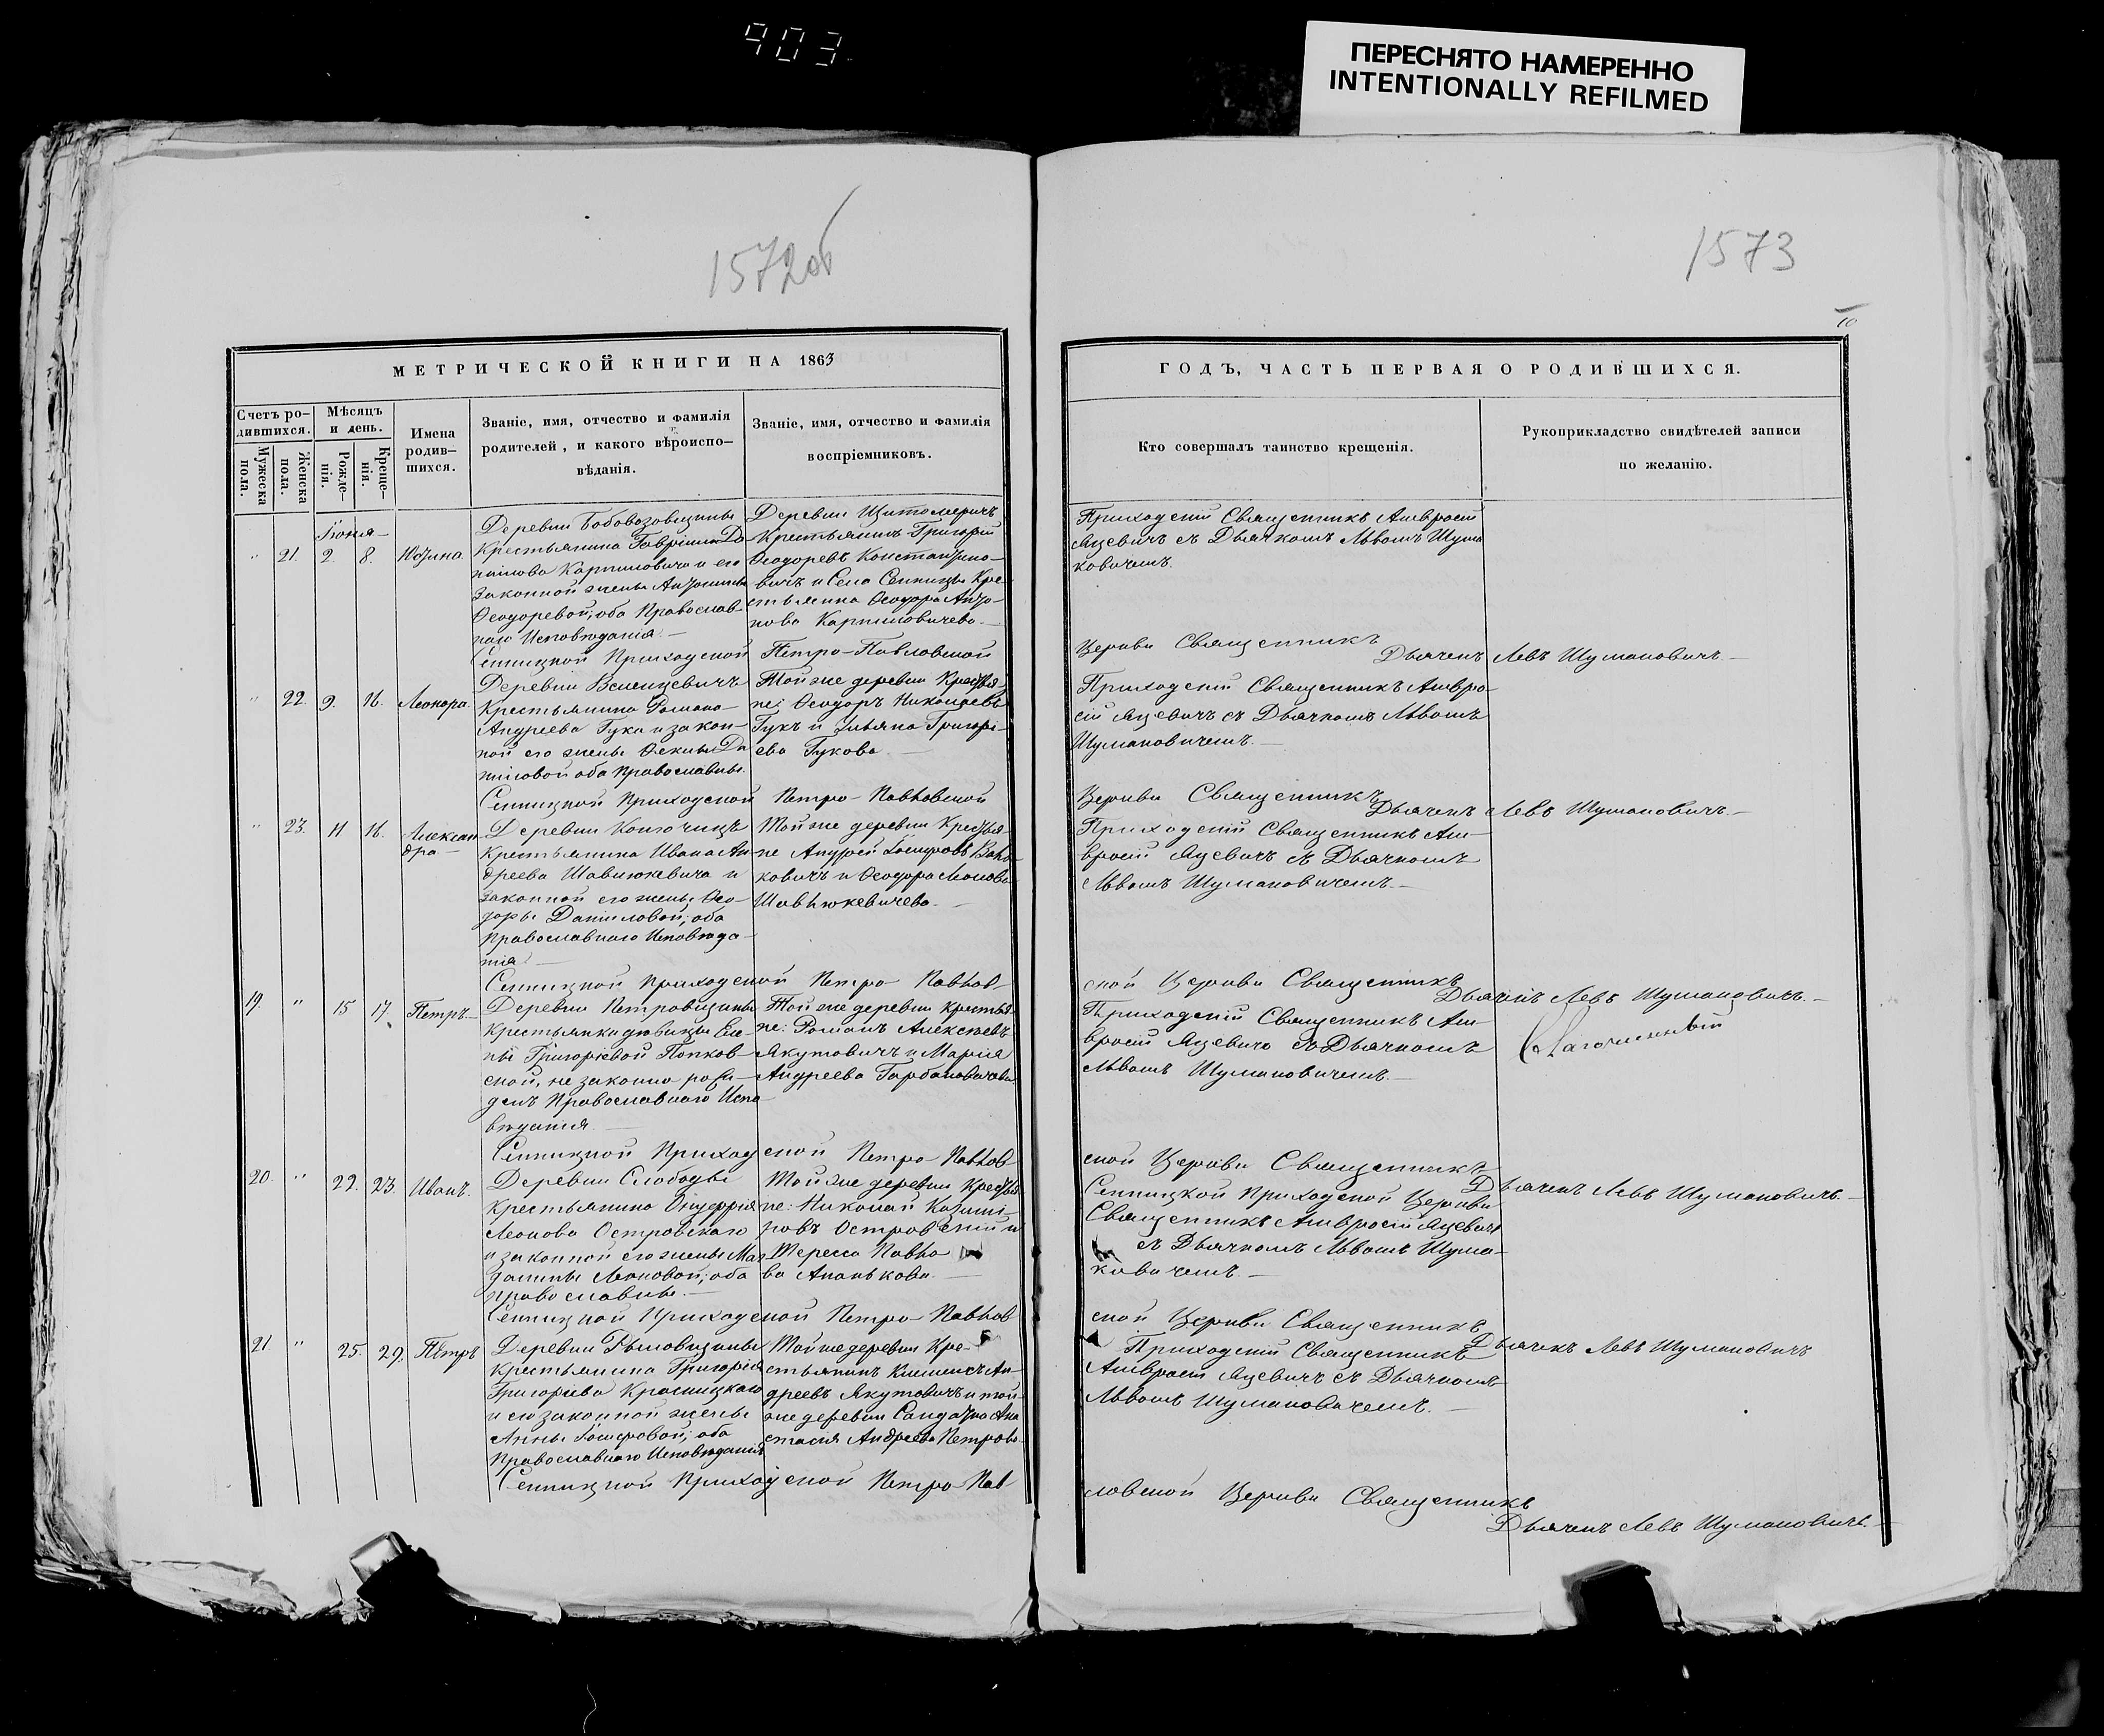 903
ПЕРЕСНЯТО НАМЕРЕННО
INTENTIONALLY REFILMED
1572об
1573
10
МЕТРИЧЕСКОЙ КНИГИ НА 1863
Счетъ ро-
дившихся.
Мужеска пола.
Женска пола.
Мѣсяцъ
и день.
Рожде-
нія.
Креще-
нія.
Имена
родив-
шихся.
Званіе, имя, отчество и фамилія
родителей, и какого вѣроиспо-
вѣданія.
Званіе, имя, отчество и фамилія
воспріемниковъ.
ГОДЪ, ЧАСТЬ ПЕРВАЯ О РОДИВШИХСЯ.
Кто совершалъ таинство крещенія.
Рукоприкладство свидѣтелей записи
по желанію.
Іюня
" 21. 2. 8.
Деревни
Крестьянина Гавріила Да-
нилова Карпиловича и его
законной жены Антонины
Ѳеодоревой; оба Православ-
наго Исповѣданія.
Деревни Щитомиричь
Крестьянинъ Григорій
Ѳеодоревъ Константино-
вичъ и Села Сенницы Кре-
стьянка Ѳеодора Анто-
нова Карпиловичева.
Приходскій Священникъ Амвросій
Яцевичъ съ Дьячкомъ Львомъ Шума
ковичемъ.
Сенницкой Приходской Петро-Павловской
Церкви Священникъ
Дьячекъ Левъ Шумаковичъ.
" 22. 9. 16. Леонора
Деревни
Крестьянина Романа
Андреева Гука и закон-
ной его жены Ѳеклы Да
ниловой оба православны.
Той же деревни Крестья-
не: Ѳеодоръ Николаевъ
Гукъ и Ульяна Григорі-
ева Гукова.
Приходскій Священникъ Амвро-
сій Яцевичъ съ Дьячкомъ Львомъ
Шумаковичемъ.
Сенницкой Приходской Петро-Павловской
Церкви Священникъ
Дьячекъ Левъ Шумаковичъ.
" 23. 11 16. Алексан
дра
Деревни
Крестьянина Ивана Ан-
дреева Шавлюкевича и
законной его жены Ѳео-
доры Даниловой; оба
Православнаго Исповѣда-
нія
Той же деревни Крестья-
не Андрей Іосифовъ
ковичъ и Ѳеодора
Шавлюкевичева.
Приходскій Священникъ Ам-
вросій Яцевичъ съ Дьячкомъ
Львомъ Шумаковичемъ.
Сенницкой Приходской Петро Павлов-
ской Церкви Священникъ
Дьячекъ Левъ Шумаковичъ.
19. " 15 17. Петръ
Деревни Петровщины
Крестьянки дѣвицы Еле-
ны Григоріевой Попков-
ской, не законно
Православнаго Испо
вѣданія.
Той же деревни Крестья-
не: Романъ Алексѣевъ
Якутовичъ и Марія
Андреева Горбаковичева
Приходскій Священникъ Ам-
вросій Яцевичъ съ Дьячкомъ
Львомъ Шумаковичемъ.
Благочинный
Сенницкой Приходской Петро Павлов
ской Церкви Священникъ
Дьячекъ Левъ Шумаковичъ.
20. " 22. 23. Иванъ.
Деревни Слободы
Крестьянина Онуфрія
Леонова Островскаго
и законной его жены Маг
далины Леоновой; оба
православны.
Той же деревни Крестья
не: Николай Казимі-
ровъ Островскій и
Тересса Павло
ва Ананькова.
Сенницкой Приходской Церкви
Священникъ Амвросій Яцевичъ
съ Дьячкомъ Львомъ Шума-
ковичемъ.
Сенницкой Приходской Петро-Павлов
ской Церкви Священникъ
Дьячекъ Левъ Шумаковичъ
21. " 25. 29. Петръ
Деревни
Крестьянина Григорія
Григоріева Красницкаго
и его законной жены
Анны Іосифовой; оба
Православнаго Исповѣданія
Той же деревни Кре-
стьянинъ Климентъ Ан-
дреевъ Якутовичъ и той
же деревни Солдатка Ана
стасія Андреева Петрова.
Приходскій Священникъ
Амвросій Яцевичъ съ Дьячкомъ
Львомъ Шумаковичемъ.
Сенницкой Приходской Петро-Пав
ловской Церкви Священникъ
Дьячекъ Левъ Шумаковичъ.